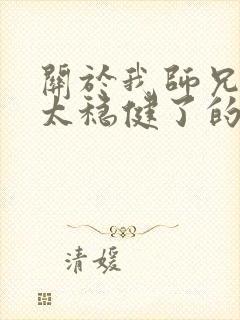 關於我師兄
太穩健了的
清媛